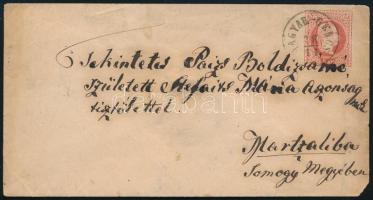 MAGYAR-
Tekintetes Pais Boldizsárné
született Stefaits Mária Asszonság
nak
tisztelettel.
Martzaliba
Somogy Megyében